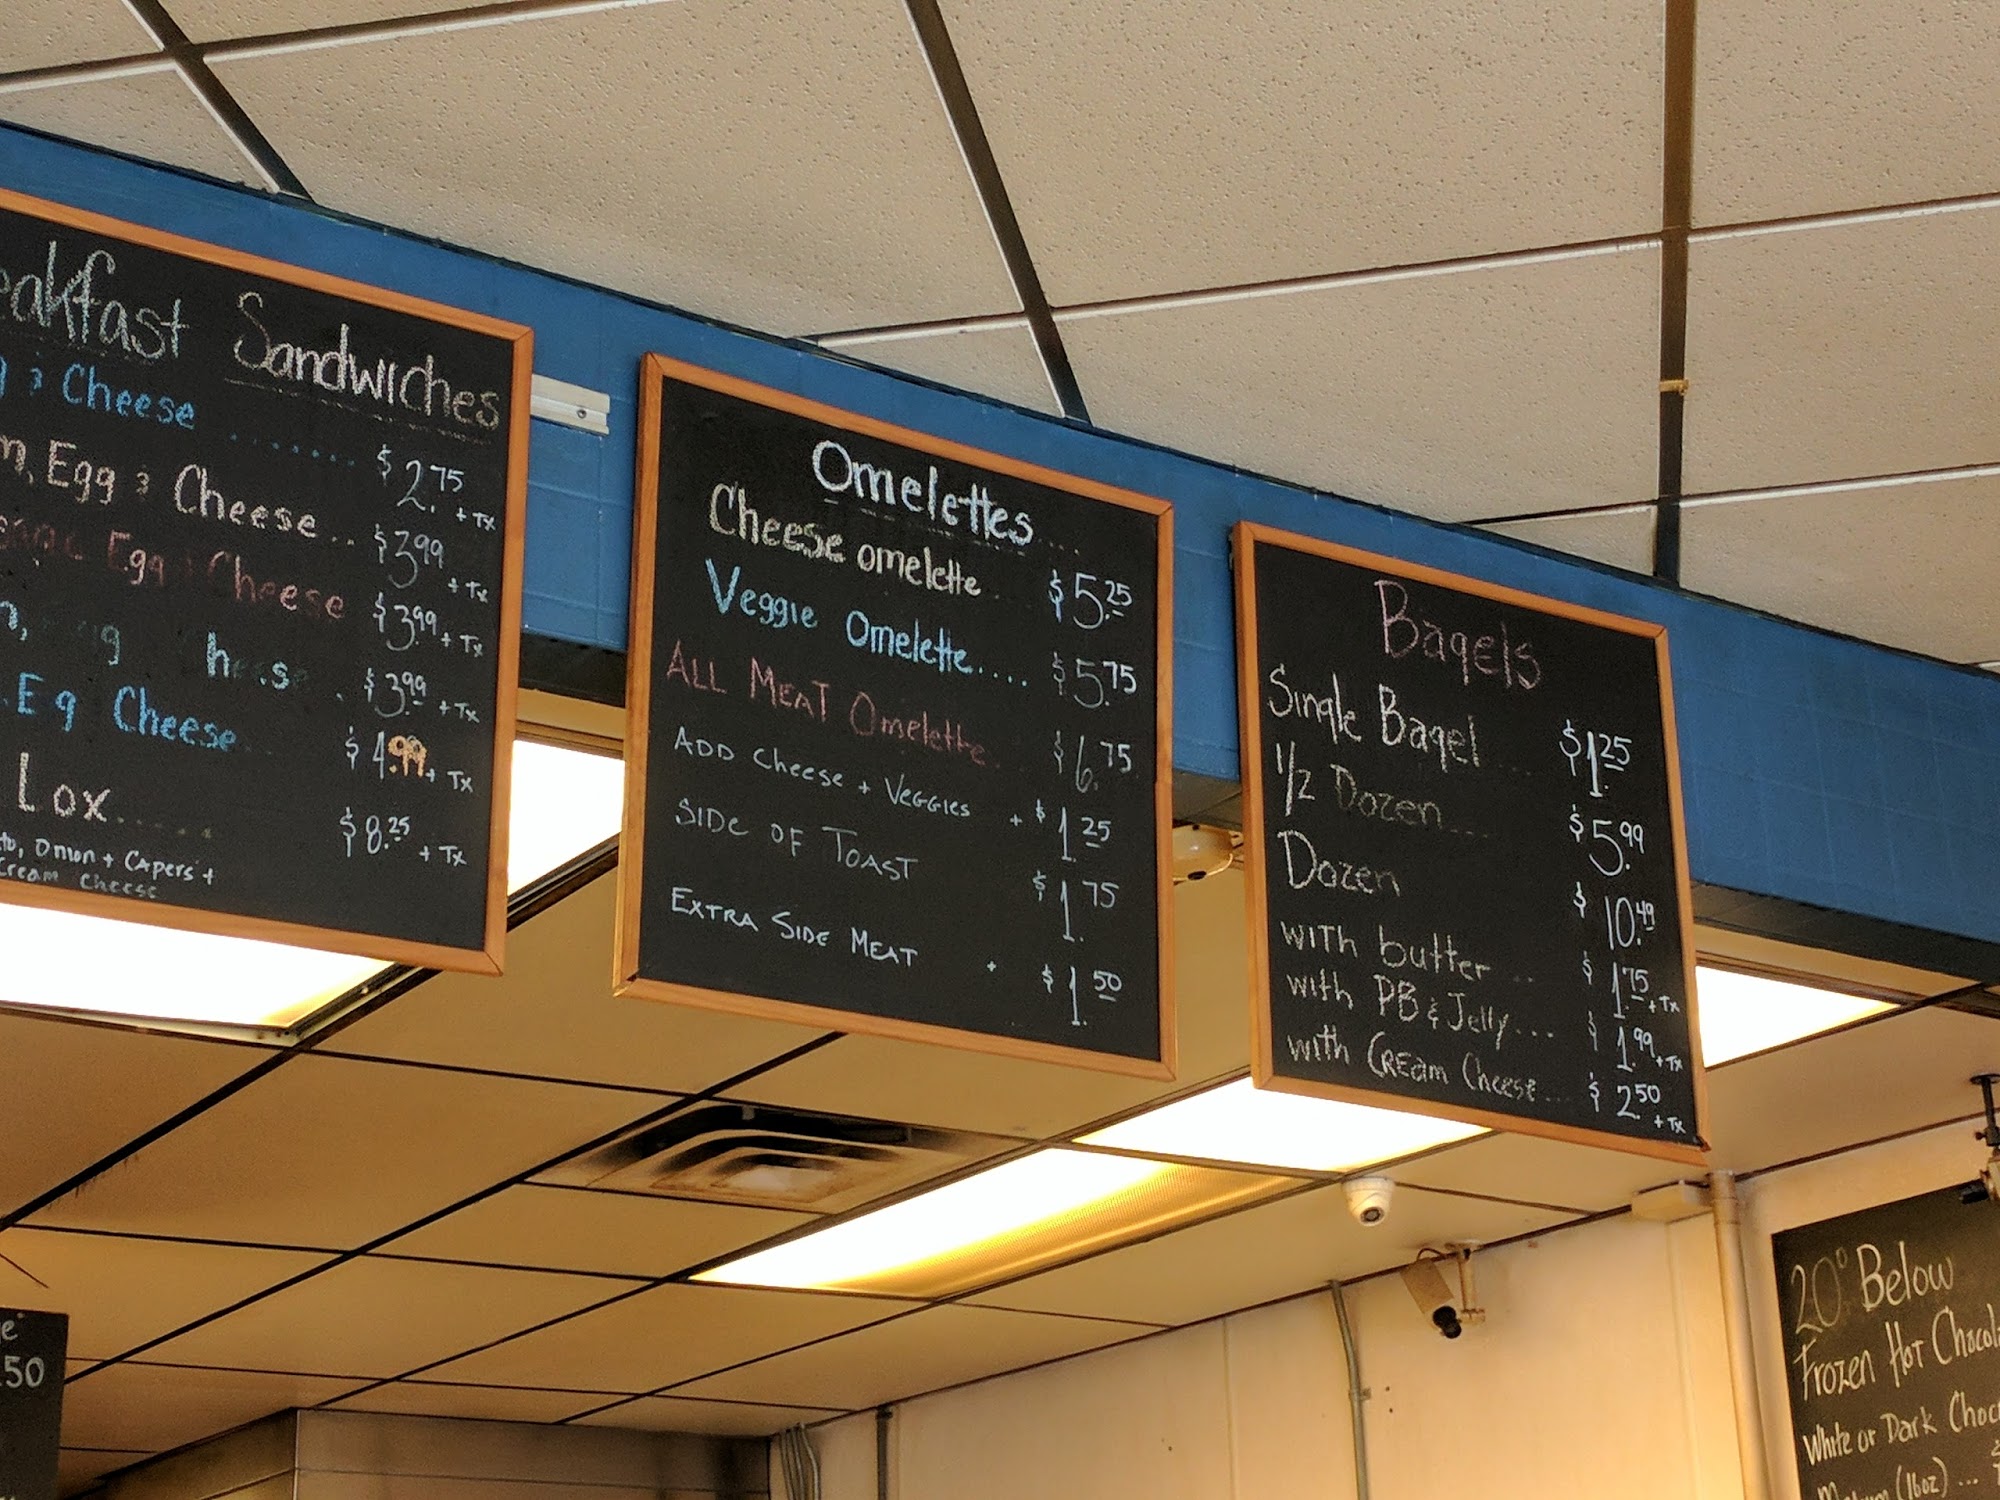 Sandwiches
Cheese ...... $2.75 + Tx
Egg & Cheese... $3.99 + Tx
Egg & Cheese $3.99 + Tx
$3.99 + Tx
Cheese $4.99 + Tx
Lox...... $8.25 + Tx
Onion + Capers +
Cream Cheese
Omelettes
Cheese omelette $5.25
Veggie Omelette.... $5.75
ALL MEAT Omelette $6.75
ADD Cheese + VEGGIES + $1.25
SIDE OF TOAST $1.75
EXTRA SIDE MEAT + $1.50
Bagels
Single Bagel ... $1.25
1/2 Dozen ... $5.99
Dozen $10.49
with butter ... $1.75 + Tx
with PB & Jelly... $1.99 + Tx
with CREam Cheese... $2.50 + Tx
50
20° Below
Frozen Hot
White or Dark
(16oz) ...